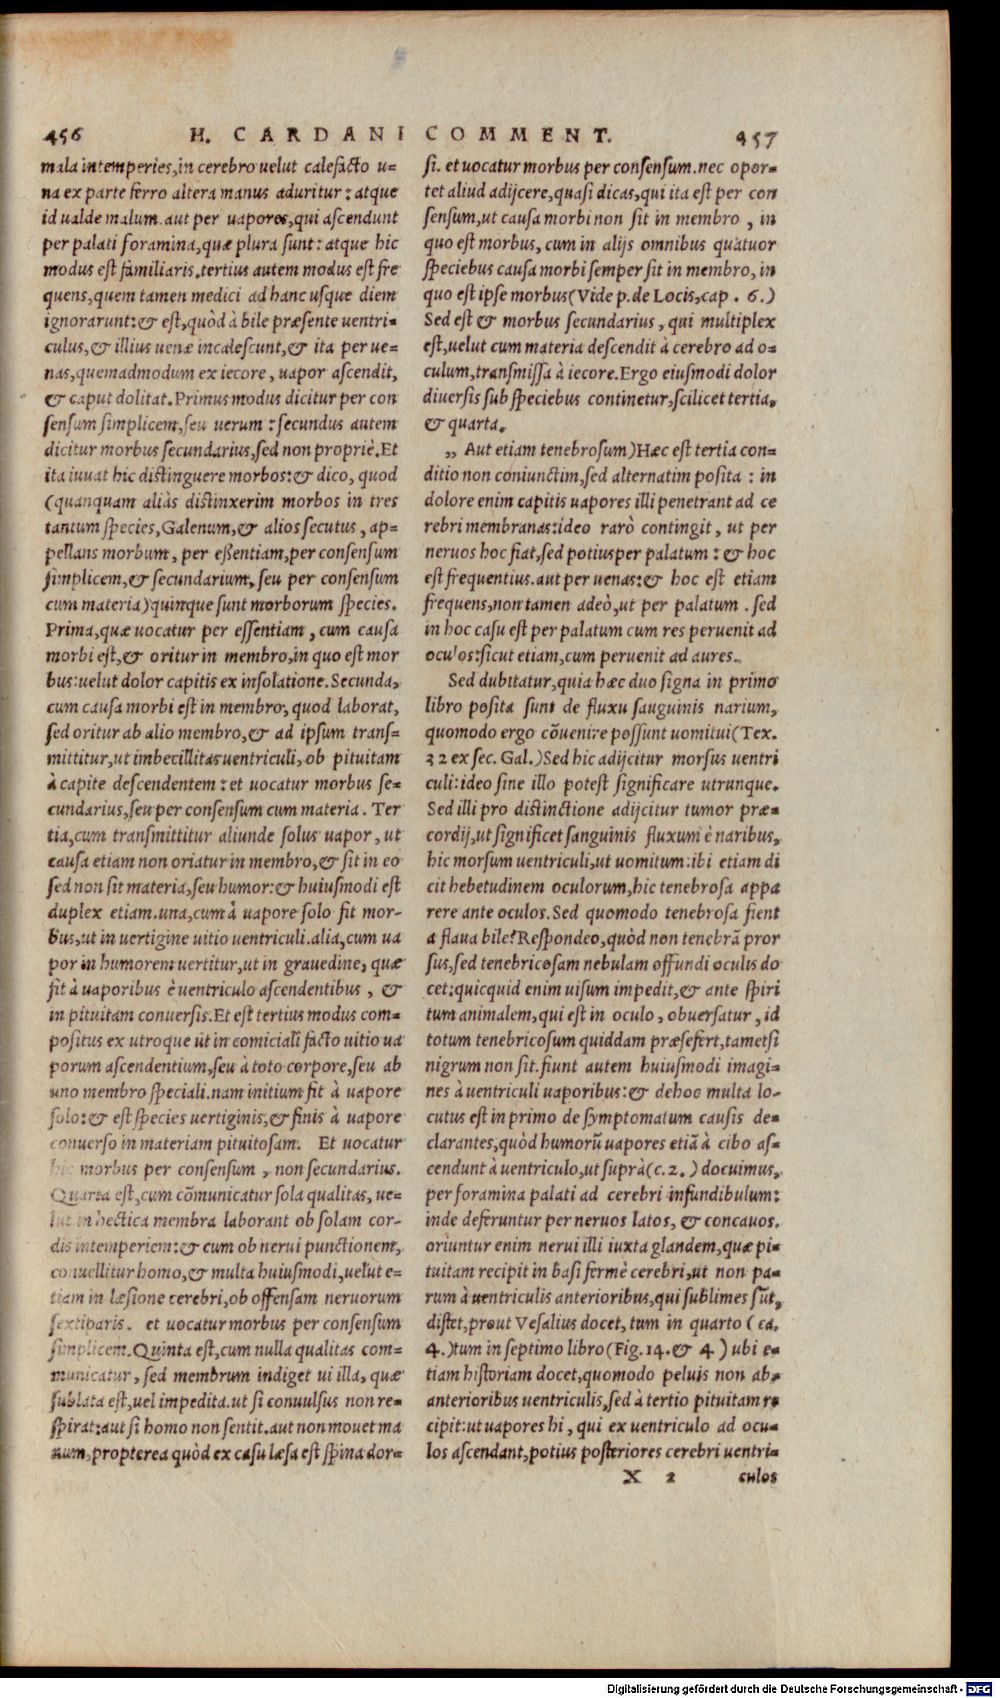 456 H. CARDANI COMMENT. 457
mala intemperies, in cerebro uelut calefacto u-
na ex parte ferro altera manus aduritur: atque
id ualde malum. aut per uapores, qui ascendunt
per palati foramina, quæ plura sunt: atque hic
modus est familiaris. tertius autem modus est fre
quens, quem tamen medici ad hanc usque diem
ignorarunt: & est, quòd à bile præsente uentri-
culus, & illius uenæ incalescunt, & ita per ue-
nas, quemadmodum ex iecore, uapor ascendit,
& caput dolitat. Primus modus dicitur per con
sensum simplicem, seu uerum: secundus autem
dicitur morbus secundarius, sed non propriè. Et
ita iuuat hic distinguere morbos: & dico, quod
(quanquam aliàs distinxerim morbos in tres
tantum species, Galenum, & alios secutus, ap-
pellans morbum, per eßentiam, per consensum
simplicem, & secundarium, seu per consensum
cum materia) quinque sunt morborum species.
Prima, quæ uocatur per essentiam, cum causa
morbi est, & oritur in membro, in quo est mor
bus: uelut dolor capitis ex insolatione. Secunda,
cum causa morbi est in membro, quod laborat,
sed oritur ab alio membro, & ad ipsum trans-
mittitur, ut imbecillitas uentriculi, ob pituitam
à capite descendentem: et uocatur morbus se-
cundarius, seu per consensum cum materia. Ter
tia, cum transmittitur aliunde solus uapor, ut
causa etiam non oriatur in membro, & sit in eo
sed non sit materia, seu humor: & huiusmodi est
duplex etiam. una, cum à uapore solo fit mor-
bus, ut in uertigine uitio uentriculi. alia, cum ua
por in humorem uertitur, ut in grauedine, quæ
fit à uaporibus è uentriculo ascendentibus, &
in pituitam conuersis. Et est tertius modus com-
positus ex utroque ut in comiciali facto uitio ua
porum ascendentium, seu à toto corpore, seu ab
uno membro speciali. nam initium fit à uapore
solo: & est species uertiginis, & finis à uapore
conuerso in materiam pituitosam. Et uocatur
hic morbus per consensum, non secundarius.
Quarta est, cum cõmunicatur sola qualitas, ue-
lut in hectica membra laborant ob solam cor-
dis intemperiem: & cum ob nerui punctionem,
conuellitur homo, & multa huiusmodi, uelut e-
tiam in læsione cerebri, ob offensam neruorum
sextiparis. et uocatur morbus per consensum
simplicem. Quinta est, cum nulla qualitas com-
municatur, sed membrum indiget ui illa, quæ
sublata est, uel impedita. ut si conuulsus non re-
spirat: aut si homo non sentit. aut non mouet ma
num, propterea quòd ex casu læsa est spina dor-
si. et uocatur morbus per consensum. nec opor-
tet aliud adijcere, quasi dicas, qui ita est per con
sensum, ut causa morbi non sit in membro, in
quo est morbus, cum in alijs omnibus quatuor
speciebus causa morbi semper sit in membro, in
quo est ipse morbus (Vide p. de Locis, cap. 6.)
Sed est & morbus secundarius, qui multiplex
est, uelut cum materia descendit à cerebro ad o-
culum, transmissa à iecore. Ergo eiusmodi dolor
diuersis sub speciebus continetur, scilicet tertia,
& quarta.
„ Aut etiam tenebrosum) Hæc est tertia con-
ditio non coniunctim, sed alternatim posita: in
dolore enim capitis uapores illi penetrant ad ce
rebri membranas: ideo rarò contingit, ut per
neruos hoc fiat, sed potius per palatum: & hoc
est frequentius. aut per uenas: & hoc est etiam
frequens, non tamen adeò, ut per palatum. sed
in hoc casu est per palatum cum res peruenit ad
oculos: sicut etiam, cum peruenit ad aures.
Sed dubitatur, quia hæc duo signa in primo
libro posita sunt de fluxu sanguinis narium,
quomodo ergo cõuenire possunt uomitui (Tex.
32 ex sec. Gal.) Sed hic adijcitur morsus uentri
culi: ideo sine illo potest significare utrunque.
Sed illi pro distinctione adijcitur tumor præ-
cordij, ut significet sanguinis fluxum è naribus,
hic morsum uentriculi, ut uomitum: ibi etiam di
cit hebetudinem oculorum, hic tenebrosa appa
rere ante oculos. Sed quomodo tenebrosa fient
a flaua bile? Respondeo, quòd non tenebrã pror
sus, sed tenebricosam nebulam offundi oculis do
cet: quicquid enim uisum impedit, & ante spiri
tum animalem, qui est in oculo, obuersatur, id
totum tenebricosum quiddam præsefert, tametsi
nigrum non sit. fiunt autem huiusmodi imagi-
nes à uentriculi uaporibus: & de hoc multa lo-
cutus est in primo de symptomatum causis de-
clarantes, quòd humorũ uapores etiã à cibo as-
cendunt à uentriculo, ut suprà (c. 2.) docuimus,
per foramina palati ad cerebri infundibulum:
inde deferuntur per neruos latos, & concauos.
oriuntur enim nerui illi iuxta glandem, quæ pi-
tuitam recipit in basi fermè cerebri, ut non pa-
rum à uentriculis anterioribus, qui sublimes sũt,
distet, prout Vesalius docet, tum in quarto (ca.
4.) tum in septimo libro (Fig. 14. & 4) ubi e-
tiam historiam docet, quomodo peluis non ab
anterioribus uentriculis, sed à tertio pituitam re
cipit: ut uapores hi, qui ex uentriculo ad ocu-
los ascendant, potius posteriores cerebri uentri-
X 2 culos
Digitalisierung gefördert durch die Deutsche Forschungsgemeinschaft - DFG